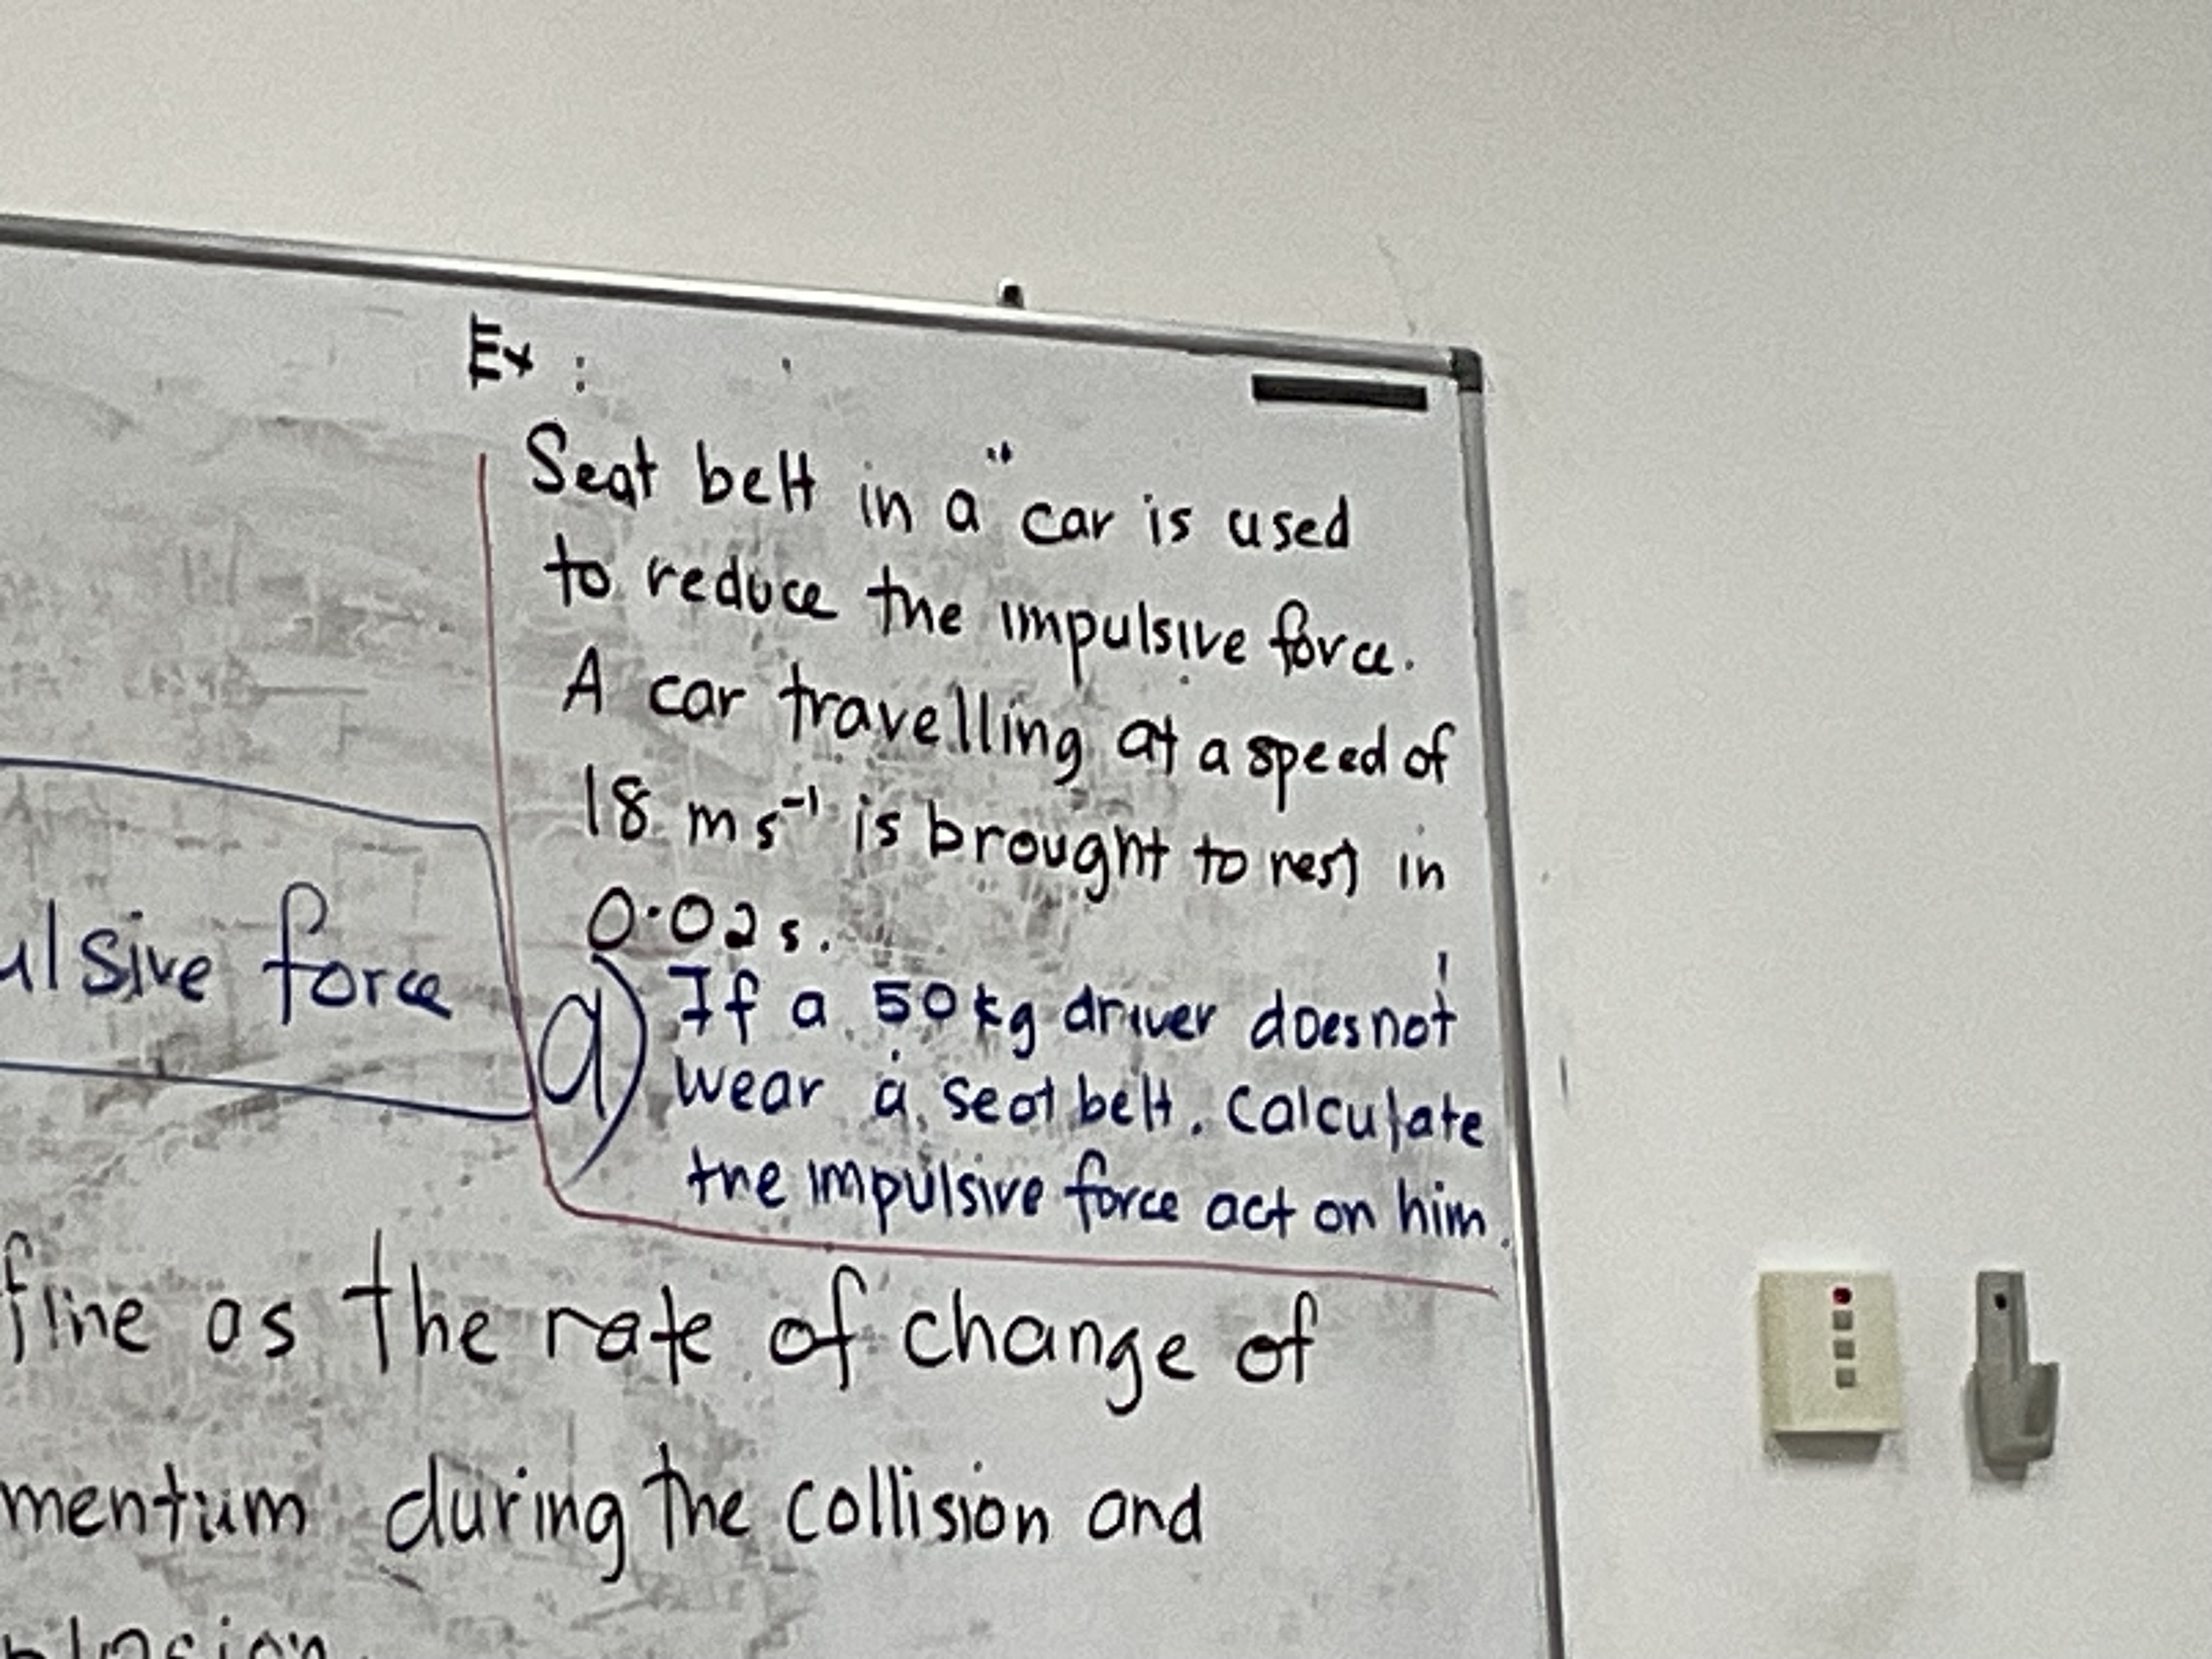 Ex :
Seat belt in a car is used
to reduce the impulsive force.
A car travelling at a speed of
18 m s⁻¹ is brought to rest in
0.02 s.
a) If a 50 kg driver does not
wear a seat belt. Calculate
the impulsive force act on him.
ulsive force
fine as the rate of change of
mentum during the collision and
plosion